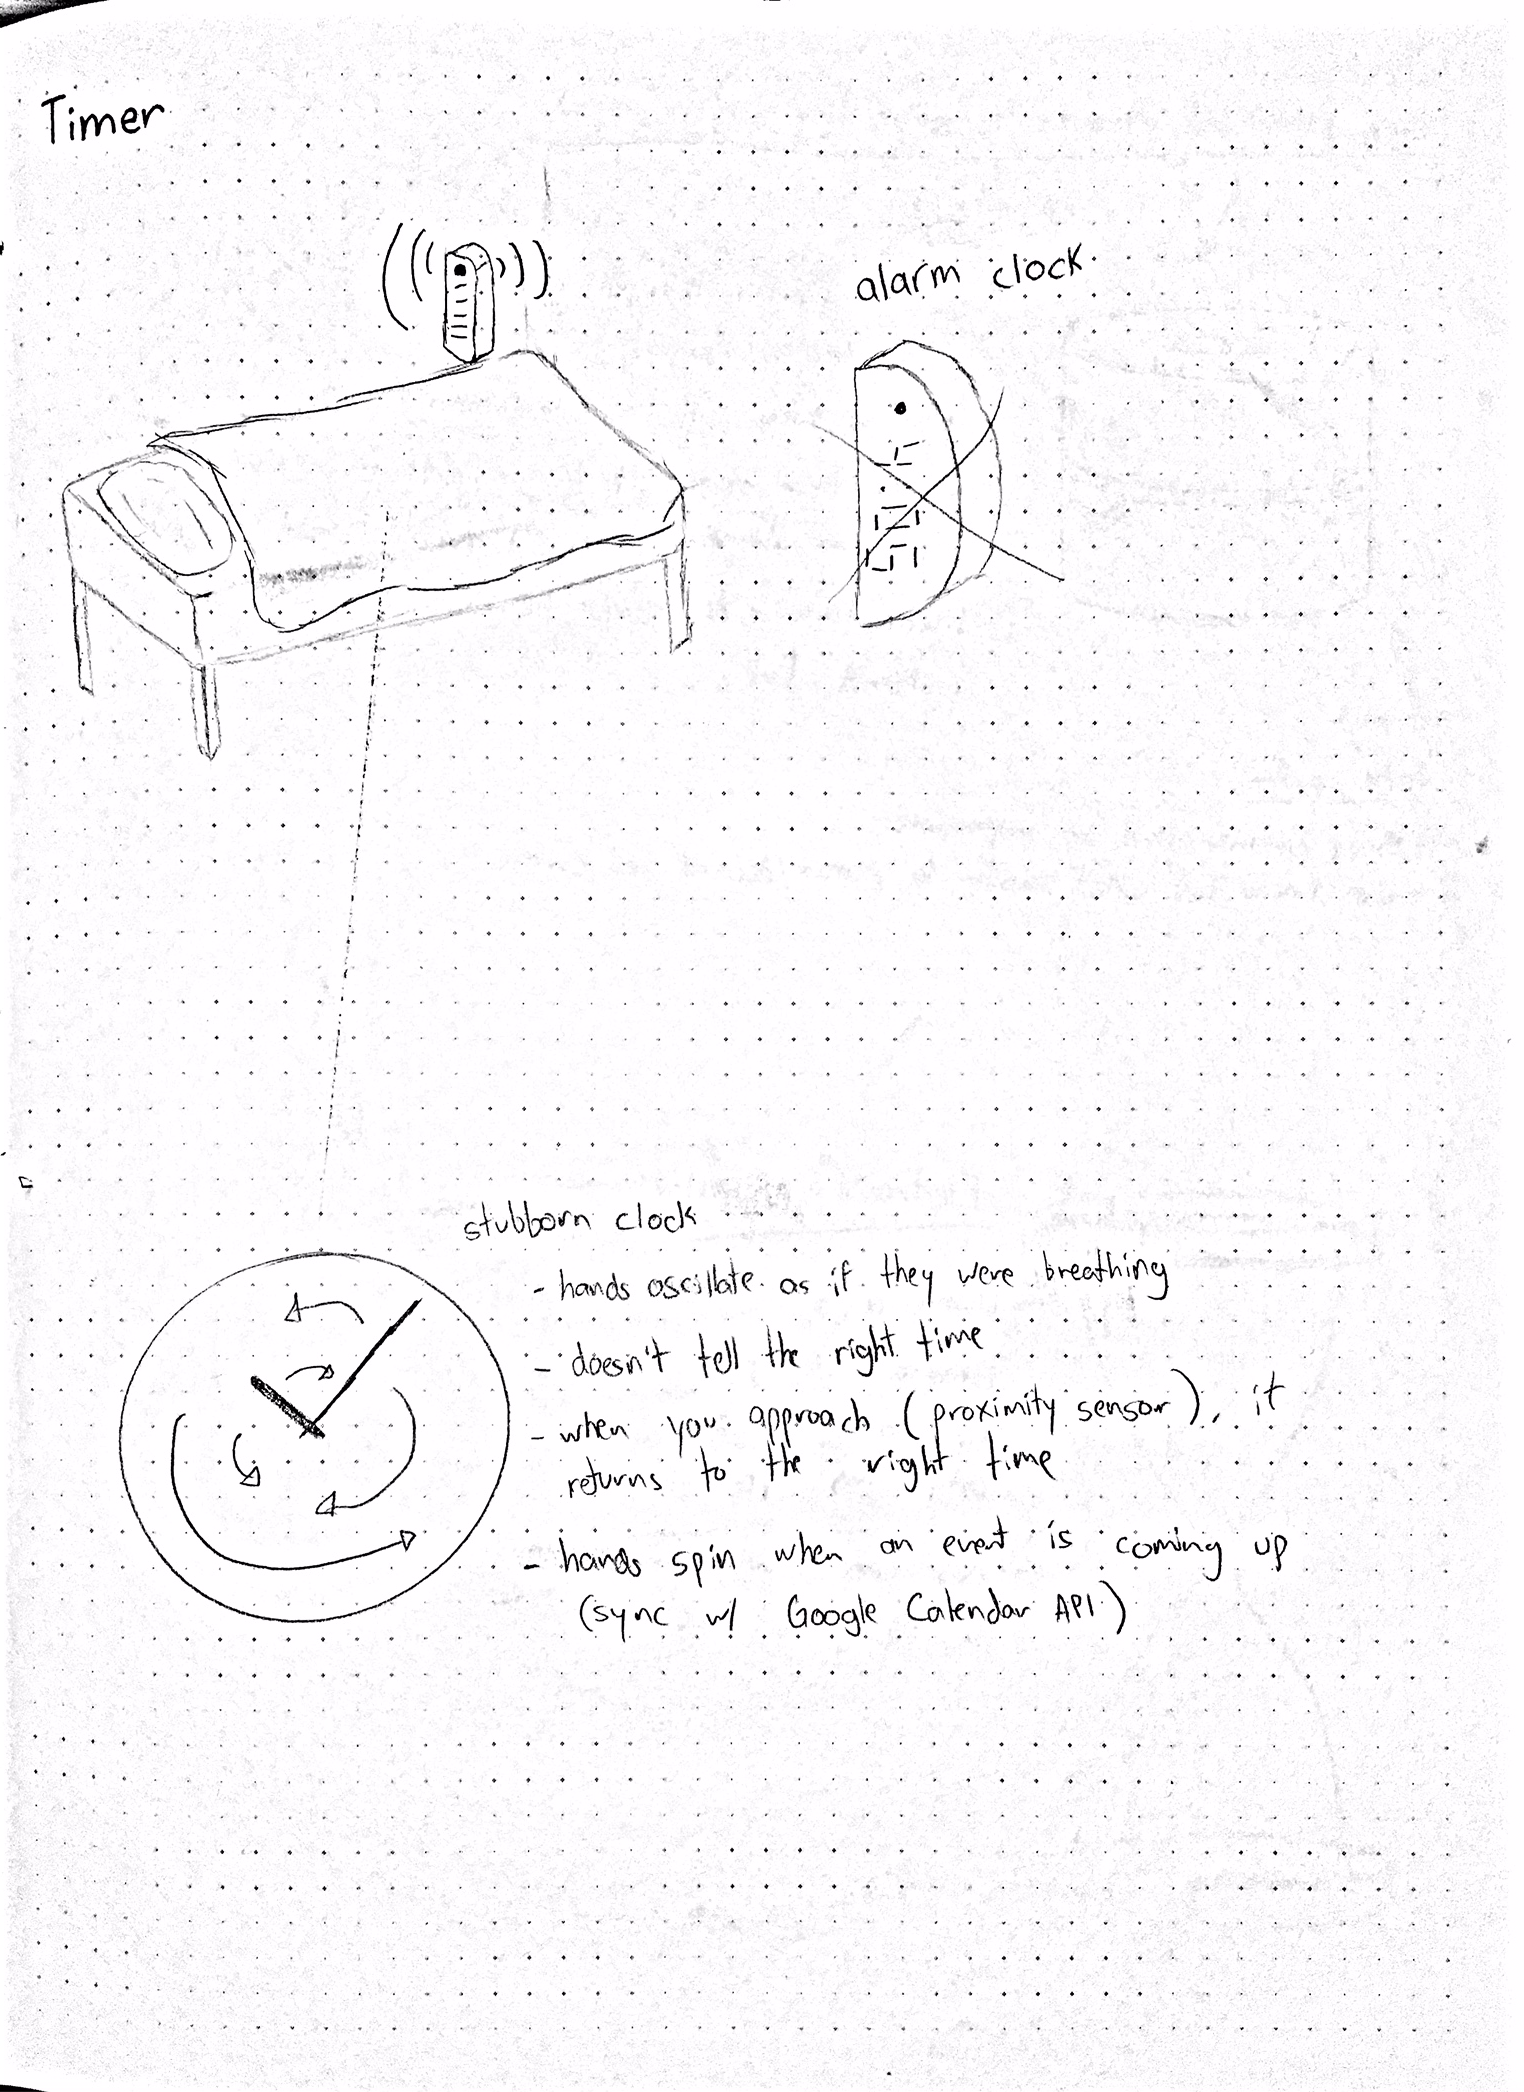 Timer
alarm clock
stubborn clock
- hands oscillate as if they were breathing
- doesn't tell the right time
- when you approach (proximity sensor), it
returns to the right time
- hands spin when an event is coming up
(sync w/ Google Calendar API)